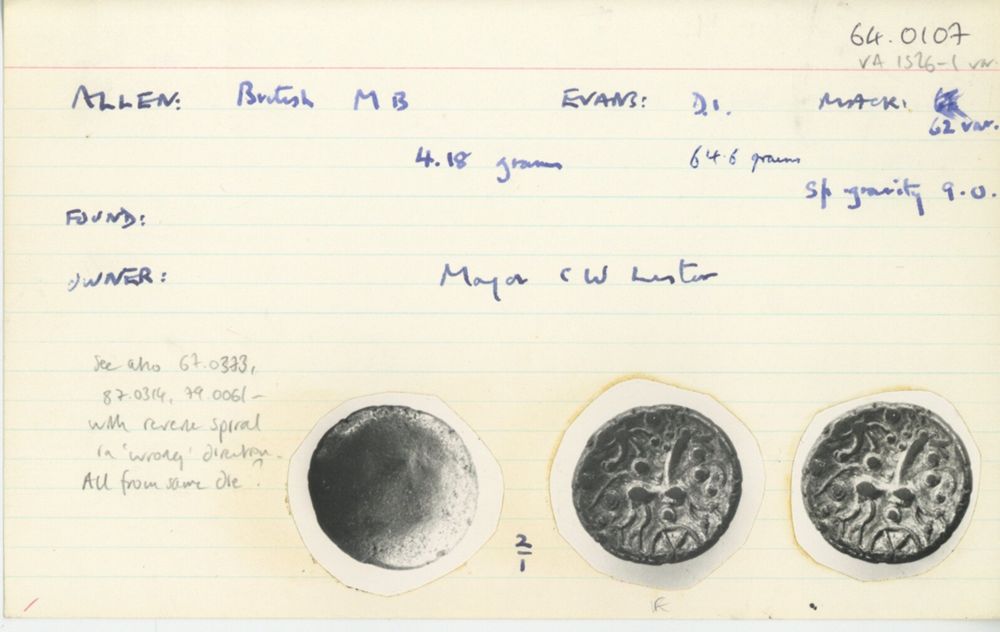 64.0107
VA 1526-1 var.
ALLEN: British M B EVANS: D.1. MACK:
62 var.
4.18 grams 64.6 grains
Sp gravity 9.0.
FOUND:
OWNER: Major C W Lister
See also 67.0373,
87.0314, 79.0061 -
with reverse spiral
in 'wrong' direction.
All from same die?
2
1